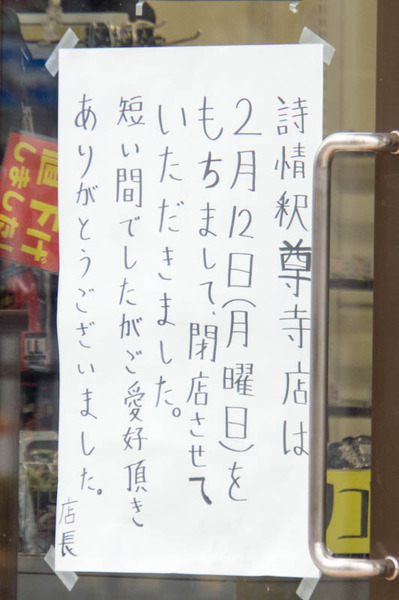 詩情釈尊寺店は
2月12日(月曜日)を
もちまして、閉店させて
いただきました。
短い間でしたがご愛好頂き
ありがとうございました。
店長
値下げ
しました